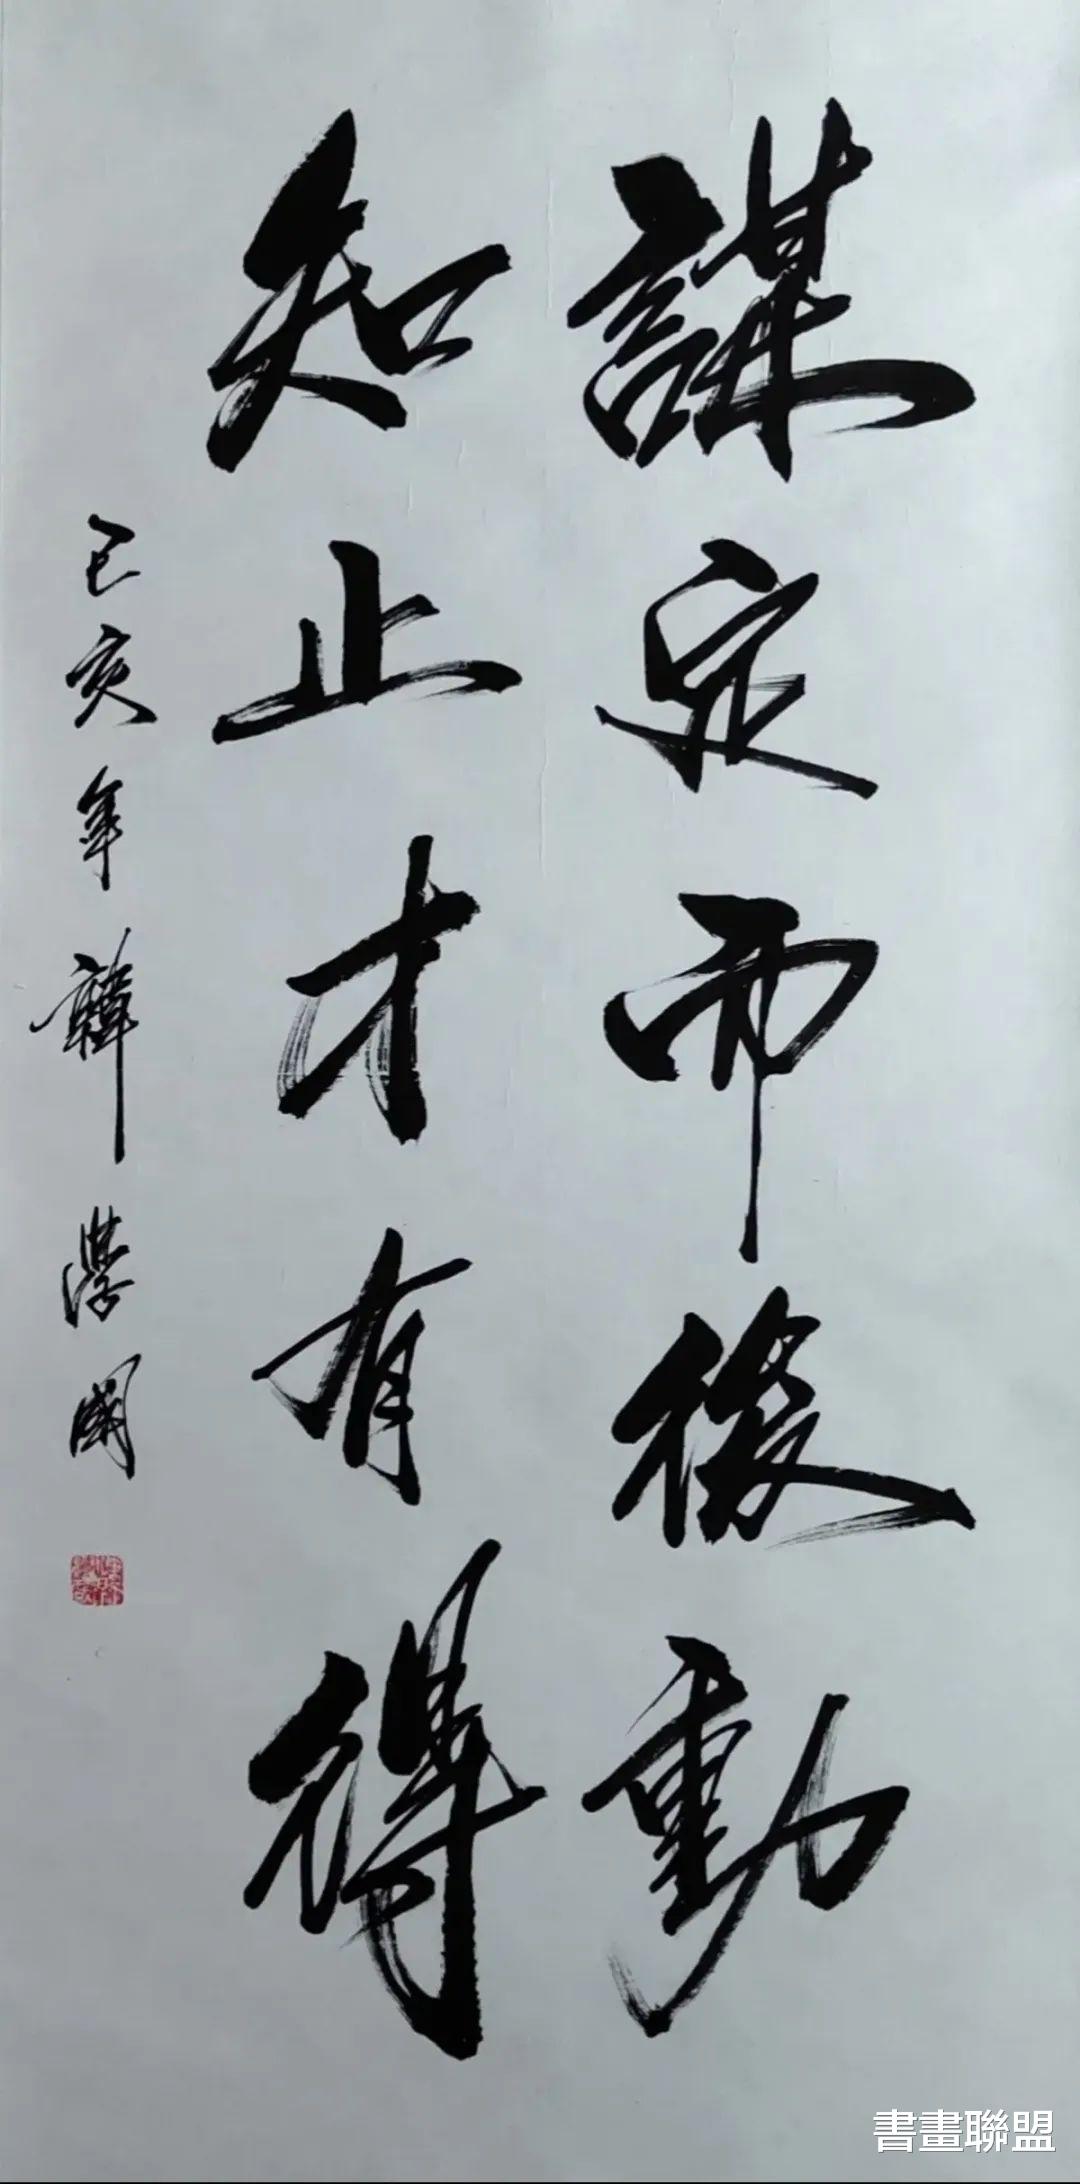 謀定而後動
知止才有得
己亥年韓學國
書畫聯盟